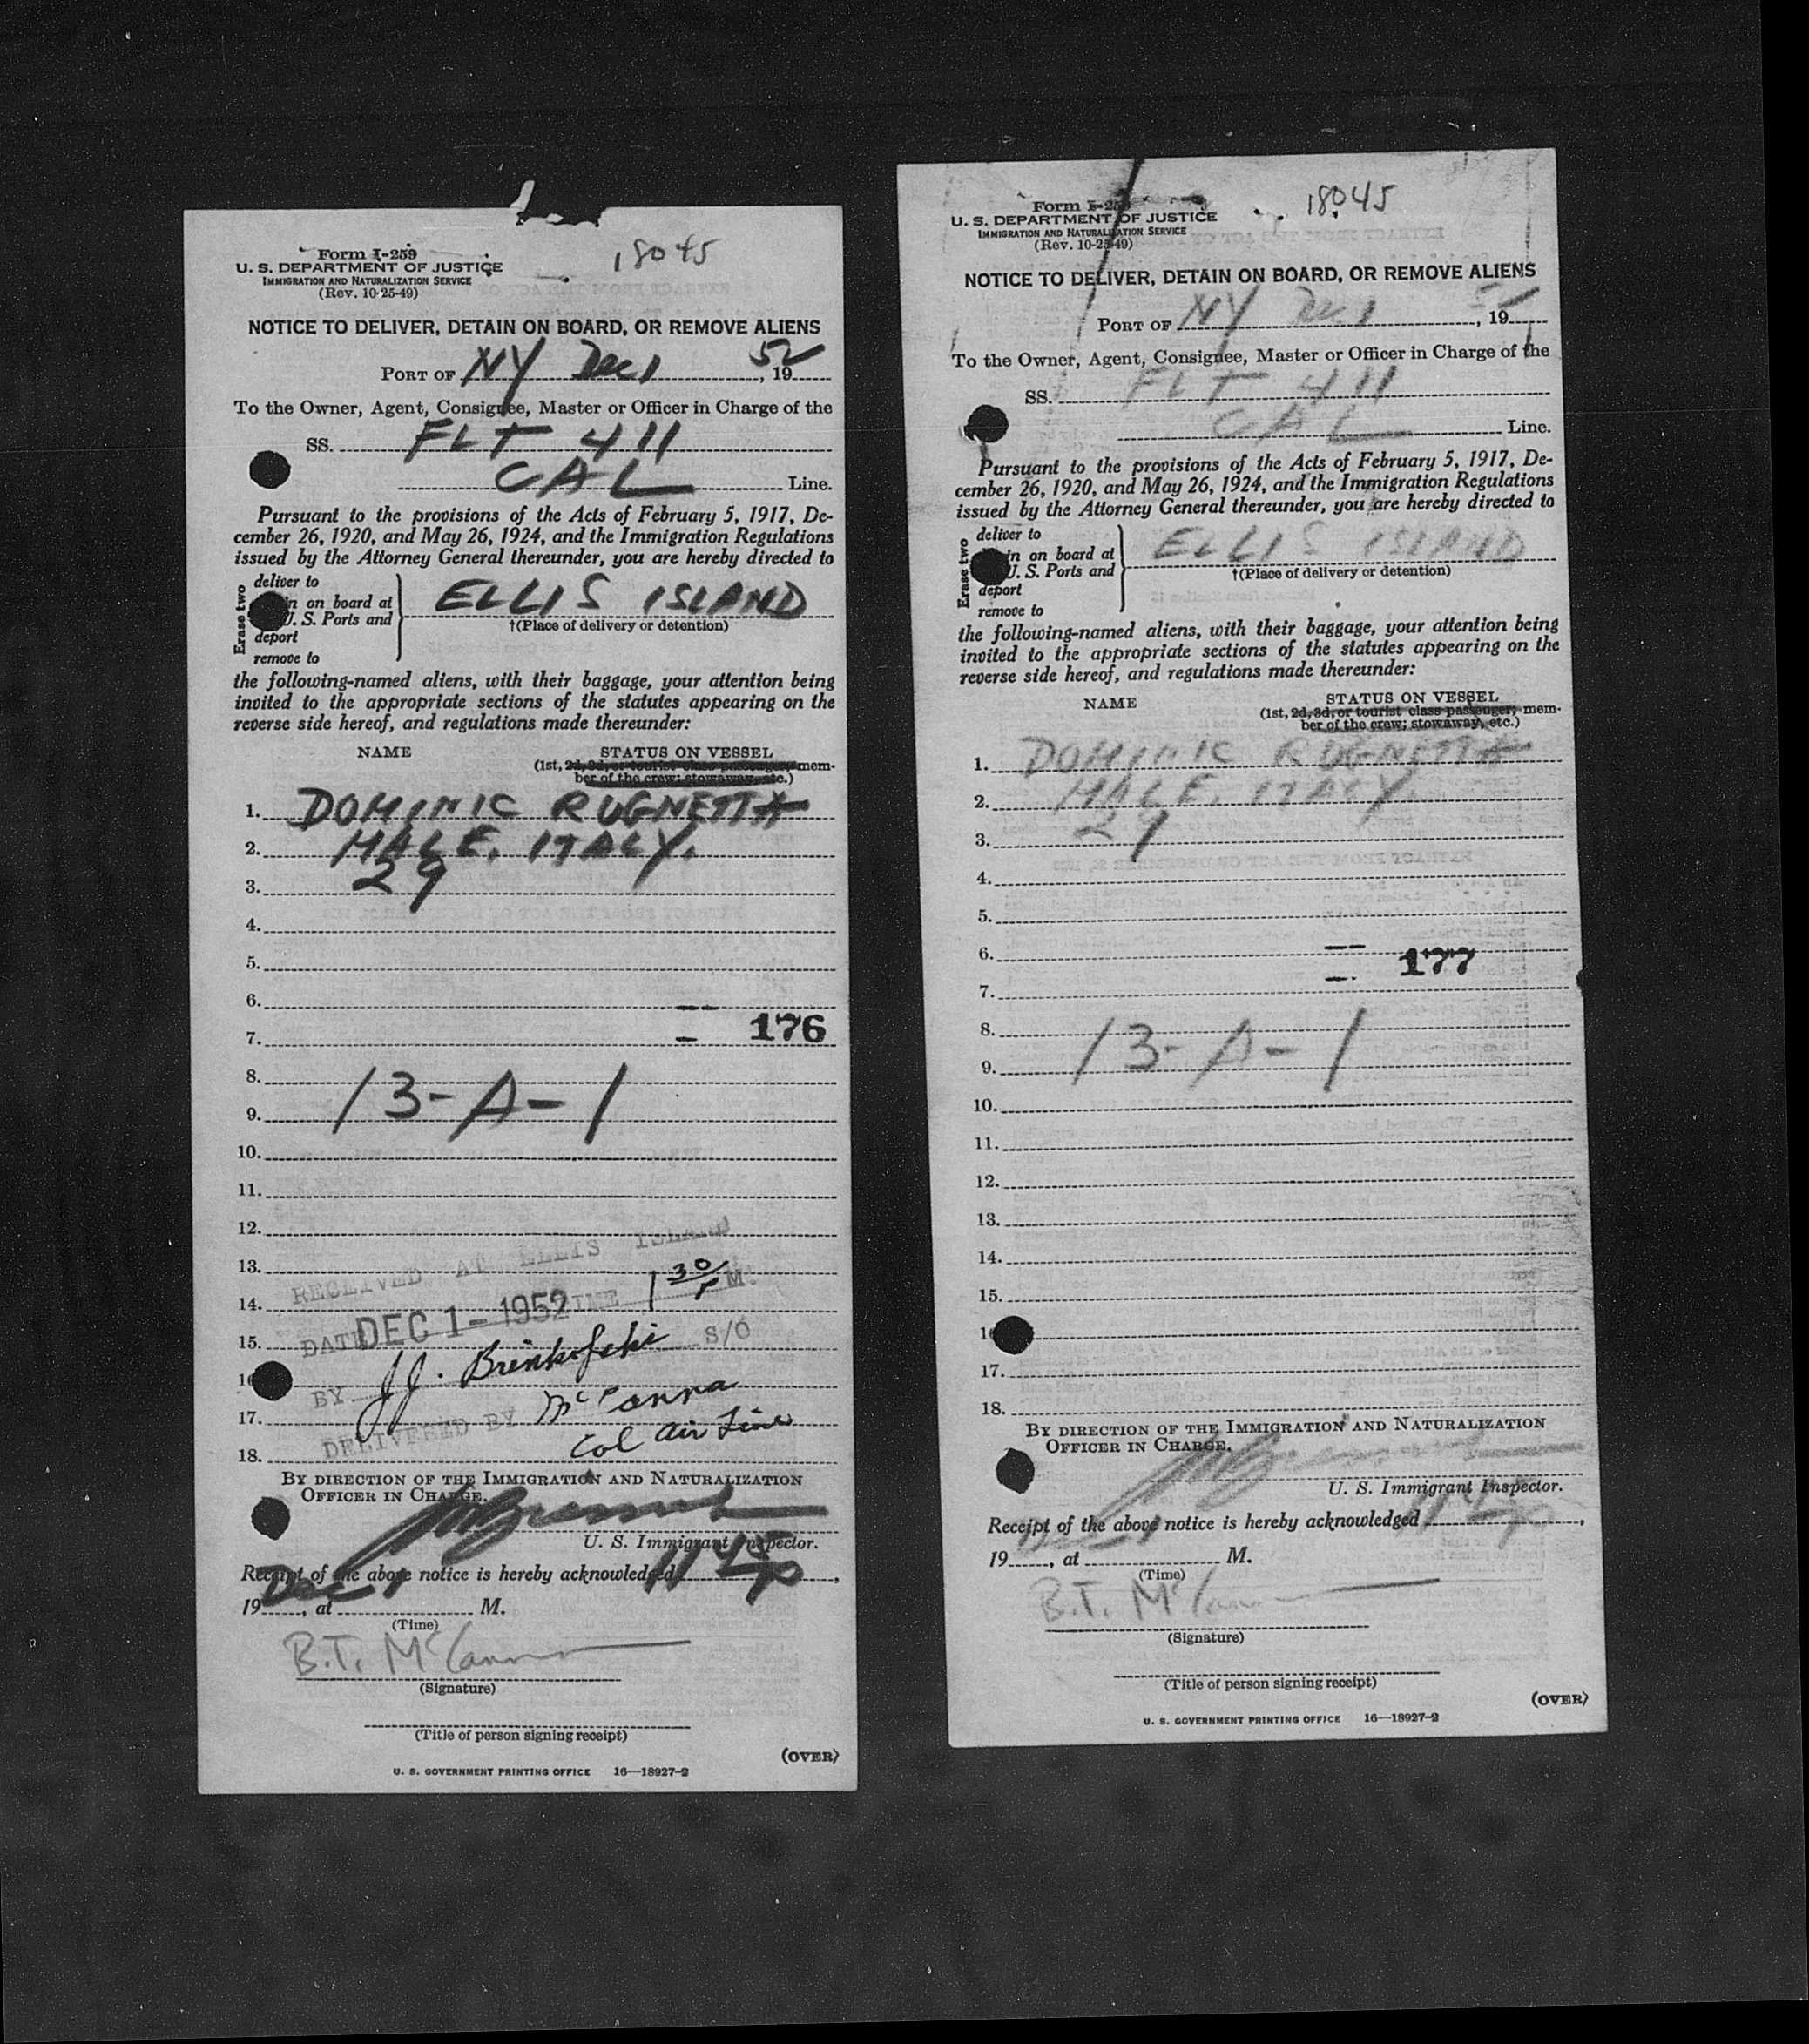 Form I-259
18045
U. S. DEPARTMENT OF JUSTICE
IMMIGRATION AND NATURALIZATION SERVICE
(Rev. 10-25-49)
NOTICE TO DELIVER, DETAIN ON BOARD, OR REMOVE ALIENS
PORT OF NY Dec 1, 1952
To the Owner, Agent, Consignee, Master or Officer in Charge of the
SS. FLT 411
CAL Line.
Pursuant to the provisions of the Acts of February 5, 1917, De-
cember 26, 1920, and May 26, 1924, and the Immigration Regulations
issued by the Attorney General thereunder, you are hereby directed to
Erase two
deliver to
in on board at
U. S. Ports and
deport
remove to
ELLIS ISLAND
†(Place of delivery or detention)
the following-named aliens, with their baggage, your attention being
invited to the appropriate sections of the statutes appearing on the
reverse side hereof, and regulations made thereunder:
NAME STATUS ON VESSEL
(1st, 2d, 3d, or tourist class passenger; mem-
ber of the crew; stowaway, etc.)
1. DOMINIC RUGNETTA
2. MALE. ITALY.
3. 29
4.
5.
6.
7. 176
8.
9. 13-A-1
10.
11.
12.
13. RECEIVED AT ELLIS ISLAND
14. TIME 1 30 P M.
15. DATE DEC 1 - 1952
16 BY J.J. Brinkofski S/O
17. DELIVERED BY McCanna
18. Col Air Line
BY DIRECTION OF THE IMMIGRATION AND NATURALIZATION
OFFICER IN CHARGE.
U. S. Immigrant Inspector.
Receipt of the above notice is hereby acknowledged 11 45
Dec 1
19, at M.
(Time)
B.T. McCanna
(Signature)
(Title of person signing receipt)
(OVER)
U. S. GOVERNMENT PRINTING OFFICE 16—18927-2
Form I-259
18045
U. S. DEPARTMENT OF JUSTICE
IMMIGRATION AND NATURALIZATION SERVICE
(Rev. 10-25-49)
NOTICE TO DELIVER, DETAIN ON BOARD, OR REMOVE ALIENS
PORT OF NY Dec 1, 1952
To the Owner, Agent, Consignee, Master or Officer in Charge of the
SS. FLT 411
CAL Line.
Pursuant to the provisions of the Acts of February 5, 1917, De-
cember 26, 1920, and May 26, 1924, and the Immigration Regulations
issued by the Attorney General thereunder, you are hereby directed to
Erase two
deliver to
in on board at
U. S. Ports and
deport
remove to
ELLIS ISLAND
†(Place of delivery or detention)
the following-named aliens, with their baggage, your attention being
invited to the appropriate sections of the statutes appearing on the
reverse side hereof, and regulations made thereunder:
NAME STATUS ON VESSEL
(1st, 2d, 3d, or tourist class passenger; mem-
ber of the crew; stowaway, etc.)
1. DOMINIC RUGNETTA
2. MALE. ITALY.
3. 29
4.
5.
6. 177
7.
8.
9. 13-A-1
10.
11.
12.
13.
14.
15.
16
17.
18.
BY DIRECTION OF THE IMMIGRATION AND NATURALIZATION
OFFICER IN CHARGE.
U. S. Immigrant Inspector.
Receipt of the above notice is hereby acknowledged 11 45,
Dec 1
19, at M.
(Time)
B.T. McCanna
(Signature)
(Title of person signing receipt)
(OVER)
U. S. GOVERNMENT PRINTING OFFICE 16—18927-2